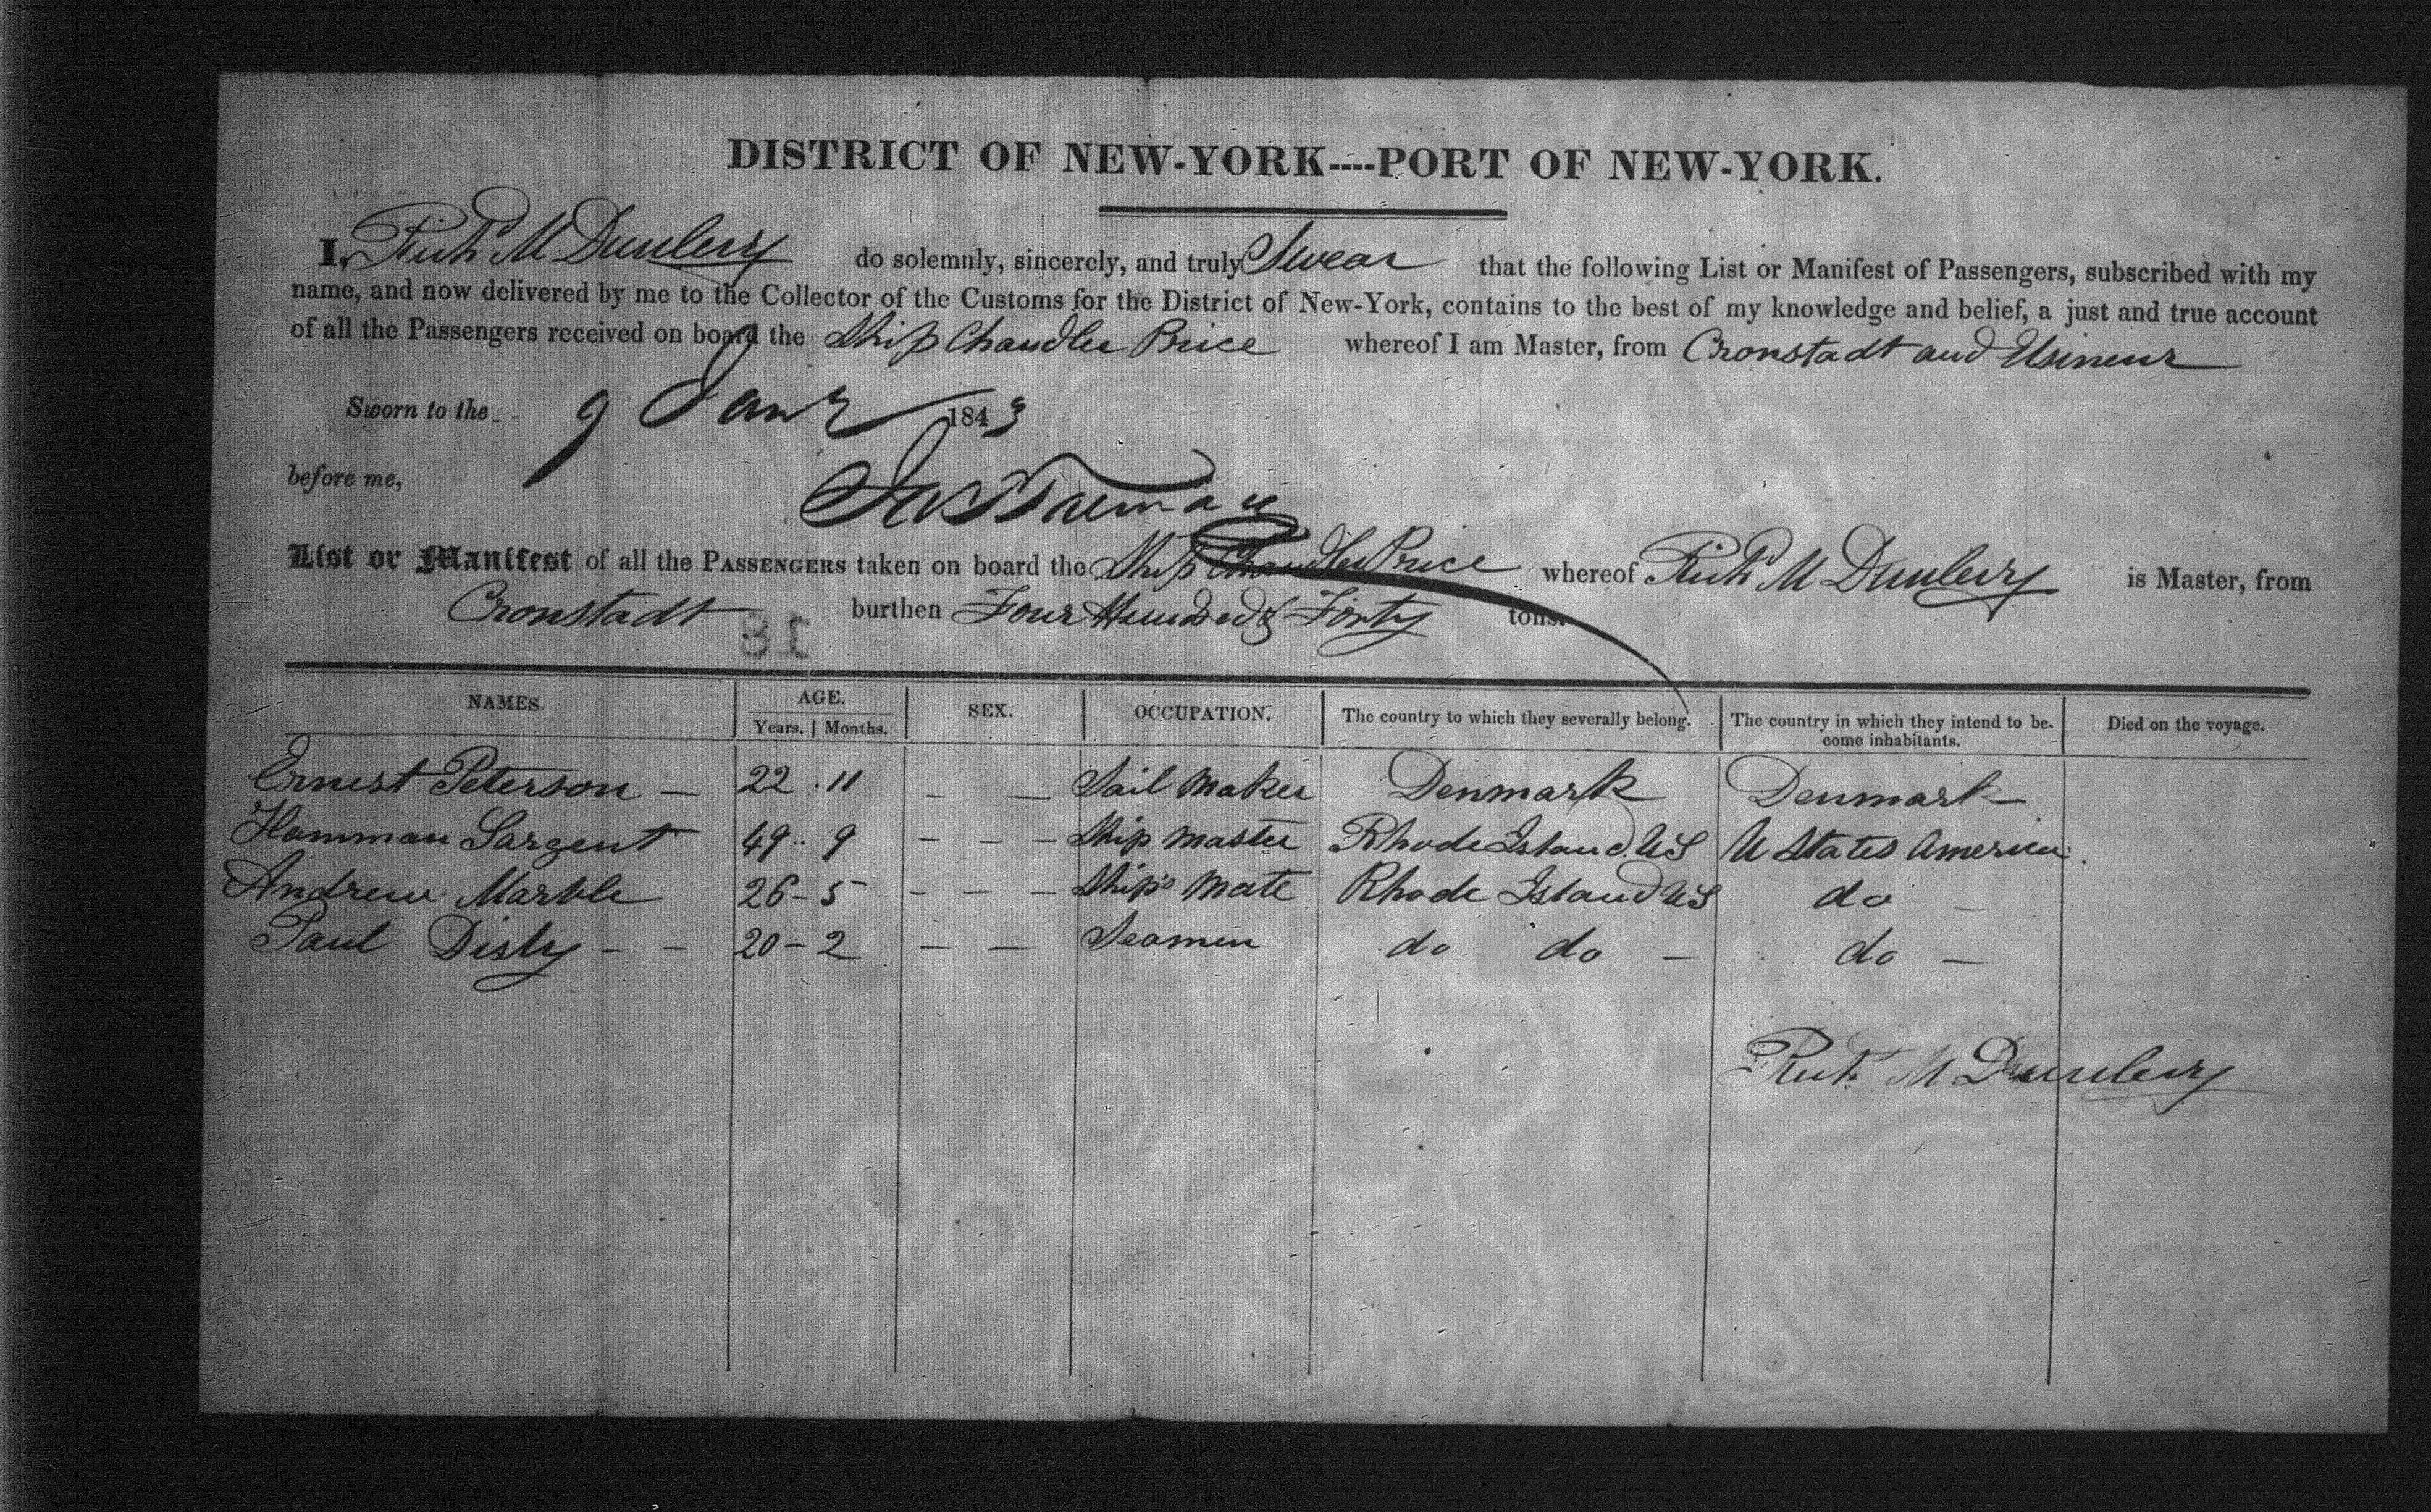 DISTRICT OF NEW-YORK----PORT OF NEW-YORK.
I, Richd M Dunlevy do solemnly, sincerely, and truly Swear that the following List or Manifest of Passengers, subscribed with my
name, and now delivered by me to the Collector of the Customs for the District of New-York, contains to the best of my knowledge and belief, a just and true account
of all the Passengers received on board the Ship Chandler Price whereof I am Master, from Cronstadt and Elsineur
Sworn to the 9 Jany 1843
before me,
List or Manifest of all the PASSENGERS taken on board the Ship Chandler Price whereof Richd M Dunlevy is Master, from
Cronstadt burthen Four Hundred & Forty tons.
18
NAMES. AGE. Years. Months. SEX. OCCUPATION. The country to which they severally belong. The country in which they intend to be-
come inhabitants. Died on the voyage.
Ernest Peterson — 22 . 11 — — Sail Maker Denmark Denmark
Hamman Sargent 49 .. 9 - - - Ship Master Rhode Island. US U States America.
Andrew Marble 26 - 5 - - - Ship's Mate Rhode Island US do -
Paul Disly - - 20 - 2 - - Seamen do do - do -
Richd M Dunlevy